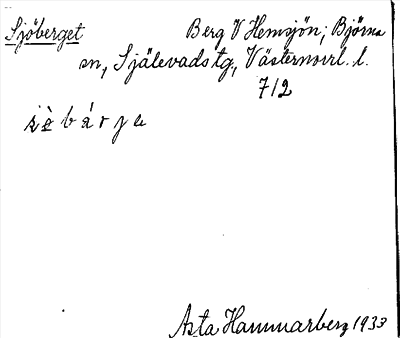 Sjöberget Berg V Hemsjön, Björna
sn, Själevads tg, Västernorrl. l.
7/2
Asta Hammarberg 1933